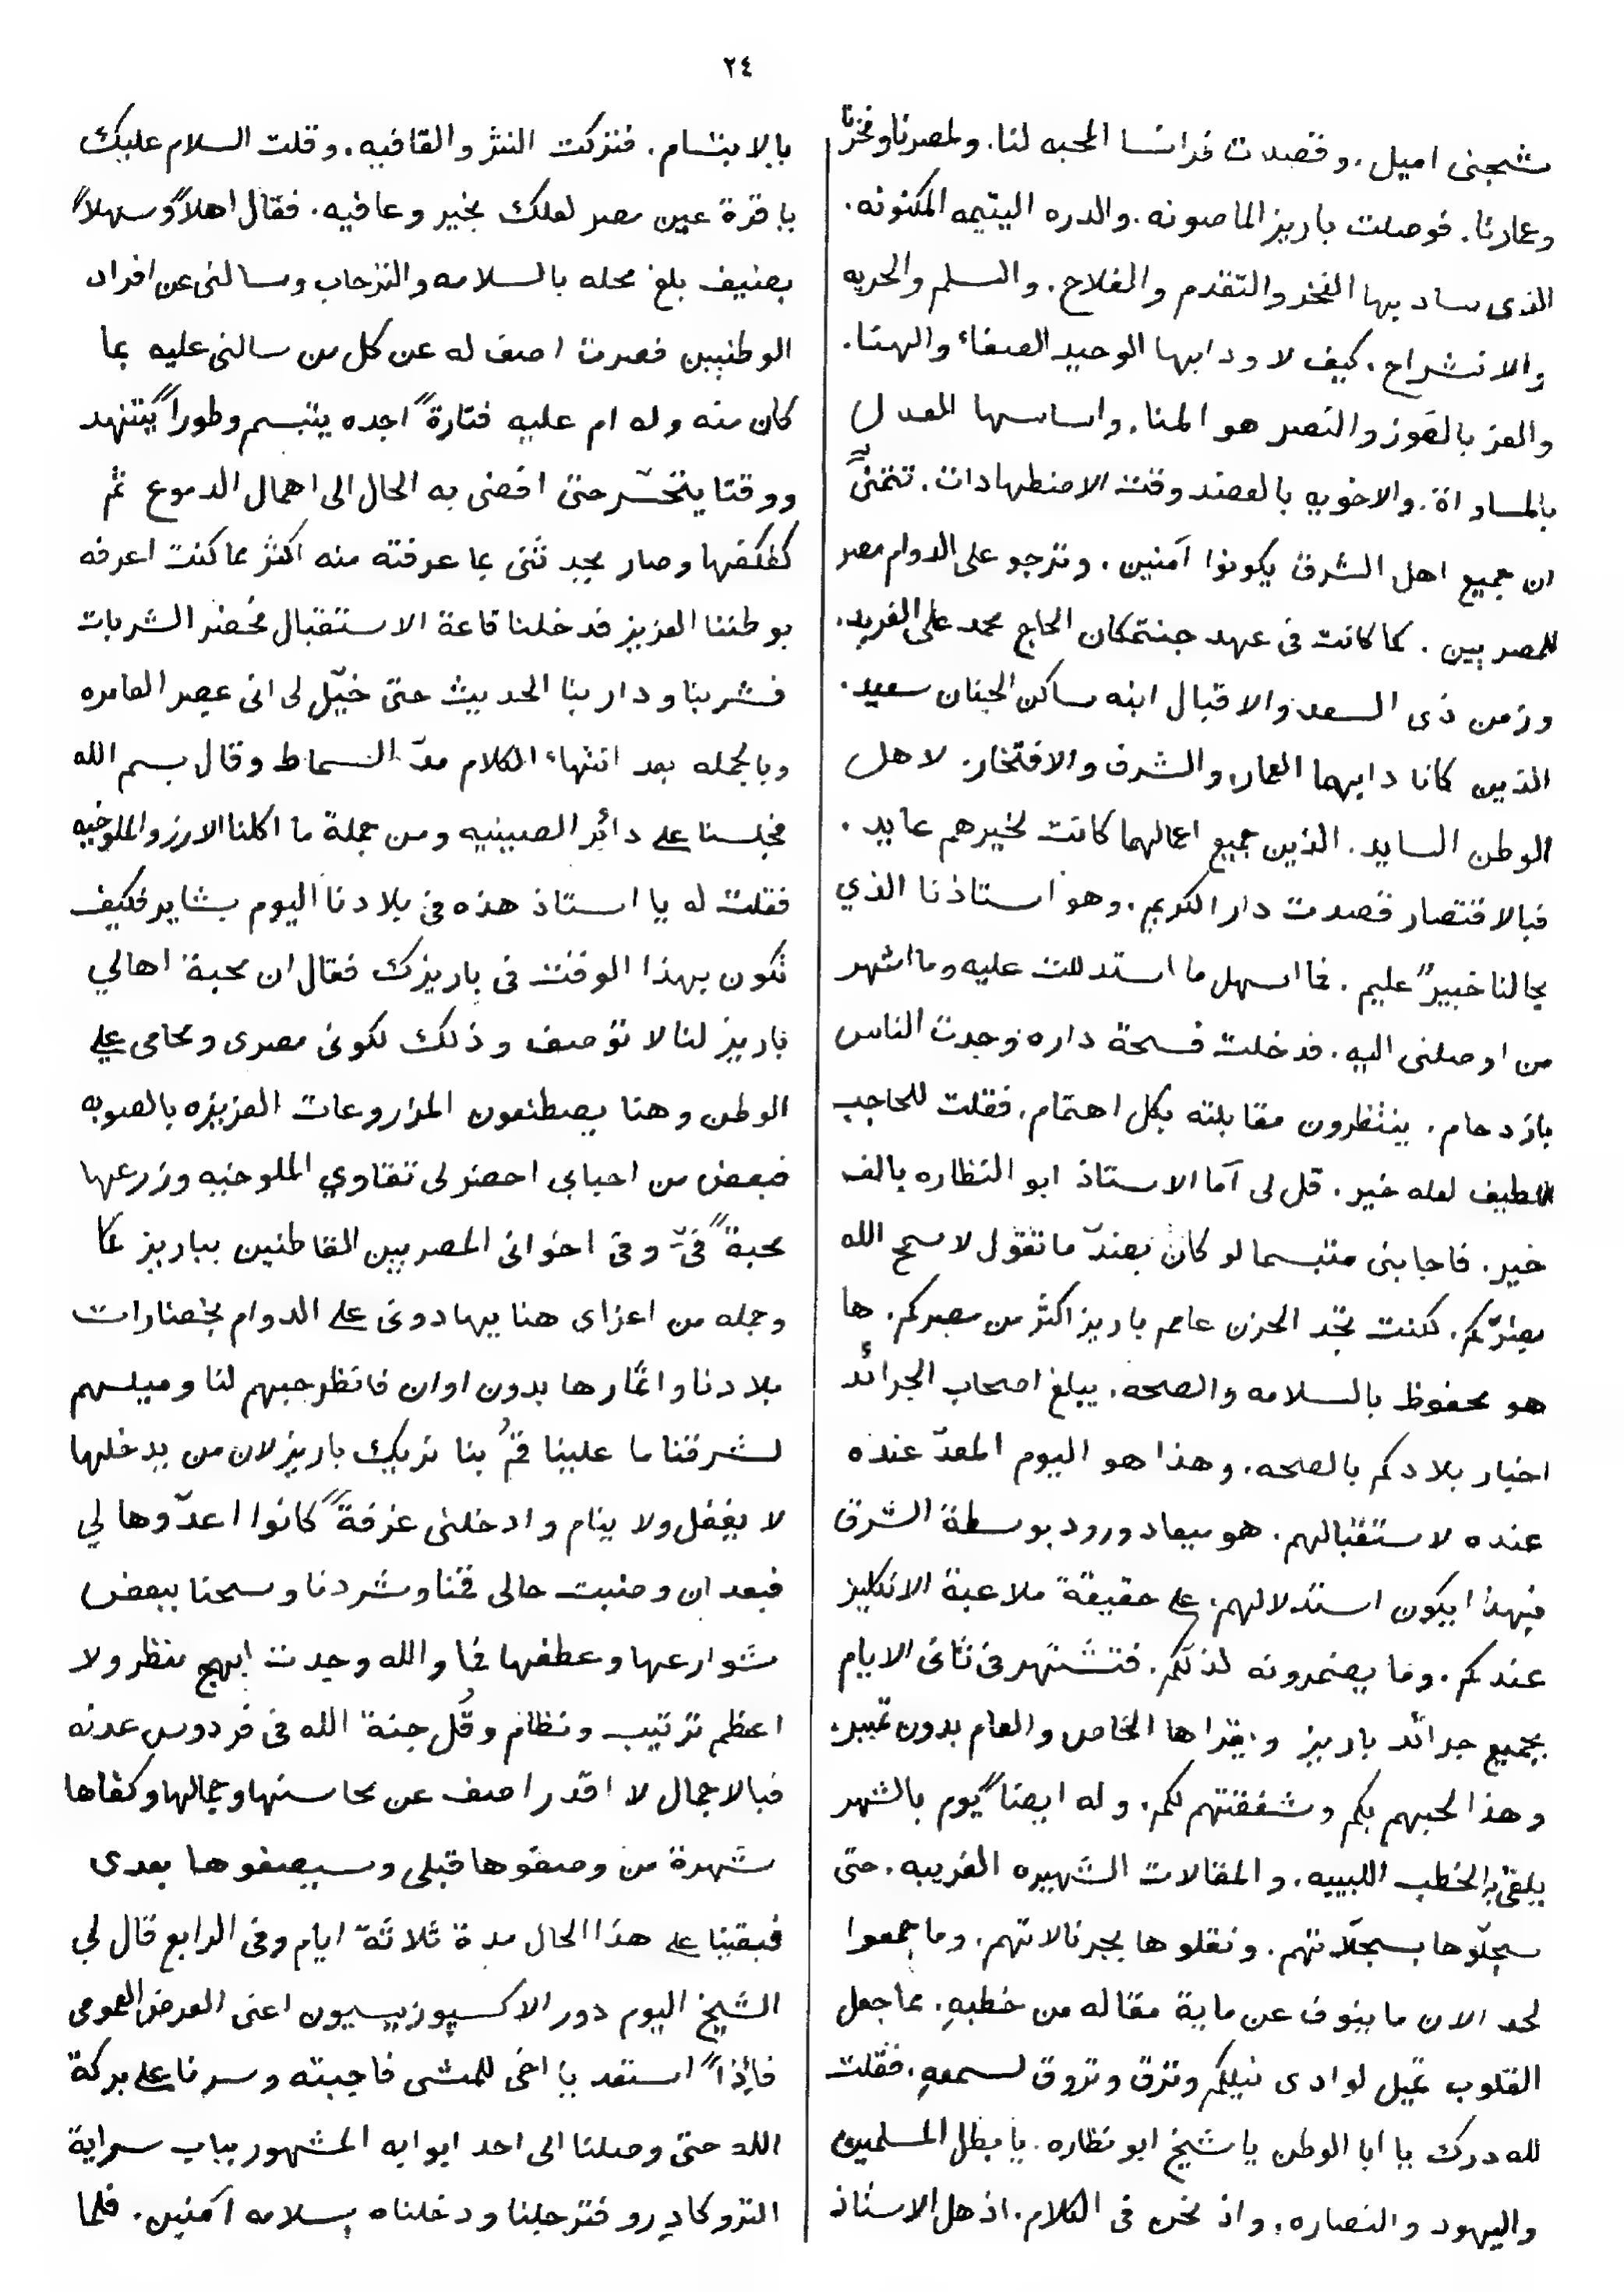 ٢٤
شجنى اميل. وقصدت فرانسا المحبه لنا. ولمصرنا وفخرنا
وعمارنا. فوصلت باريز الماصونه. والدره اليتيمه المكنونه.
الذى ساد بها الفخر والتقدم والفلاح. والسلم والحريه
والانشراح. كيف لا ودابها الوحيد الصفاء والهنا.
والعز بالفوز والنصر هو المنا. واساسها العدل
بالمساواة. والاخويه بالعضد وقت الاضطهادات. تتمنىً
ان جميع اهل الشرق يكونوا آمنين. وترجو على الدوام مصر
للمصريين. كما كانت فى عهد جنتمكان الحاج محمد على الفريد.
وزمن ذى السعد والاقبال ابنه ساكن الجنان سعيد.
الذين كانا دابهما العمار والشرف والافتخار. لاهل
الوطن السايد. الذين جميع اعمالهما كانت لخيرهم عايد.
فبالاقتصار قصدت دار الكريم. وهو استاذنا الذي
بحالنا خبيرً عليم. فما اسهل ما استدللت عليه وما اشهر
من اوصلنى اليه. فدخلت فسحة داره وجدت الناس
بازدحام. ينتظرون مقابلته بكل اهتمام. فقلت للحاجب
اللطيف لعله خير. قل لى آما الاستاذ ابو النظاره بالف
خير. فاجابنى متبسما لو كان بضدّ ما تقول لا سمح الله
بضرّكم. لكنت تجد الحزن عامم باريز اكثر من مصركم. ها
هو محفوظ بالسلامه والصحه. يبلغ اصحاب الجرائد
اخبار بلادكم بالصحه. وهذا هو اليوم المعدّ عنده
عنده لاستقبالهم. هو ميعاد ورود بوسطة الشرق
فبهذا يكون استدلالهم. على حقيقة ملاعبة الانكليز
عندكم. وما يضمرونه لذلكم. فتشتهر فى ثانى الايام
بجميع جرائد باريز ويقراها الخاص والعام بدون تمييز.
وهذا لحبهم بكم وشفقتهم لكم. وله ايضاً يوم بالشهر
يلقى به الخطب اللبيبه. والمقالات الشهيره الغريبه. حتى
سجلّوها بسجلاّتهم. ونقلوها بجرنالاتهم. وما جمعوا
لحد الان ما ينوف عن ماية مقاله من خطبهِ. مما جعل
القلوب تميل لوادى نيلكم وترق وتروق لسمعهِ. فقلت
لله درك يا ابا الوطن يا شيخ ابو نظاره. يا بطل المسلمين
واليهود والنصاره. واذ نحن فى الكلام. اذ هل الاستاذ
بالابتسام. فتركت النثر والقافيه. وقلت السلام عليك
يا قرة عين مصر لعلك بخير وعافيه. فقال اهلاً وسهلاً
بضيف بلغ محله بالسلامه والترحاب وسالنى عن افراد
الوطنيين فصرت اصف له عن كل من سالنى عليه بما
كان منه وله ام عليه فتارةً اجده يتبسم وطوراً يتنهد
ووقتا يتحسّر حتى افضى به الحال الى اهمال الدموع ثم
كفكفها وصار يحدثنى بما عرفته منه اكثر مما كنت اعرفه
بوطننا العزيز فدخلنا قاعة الاستقبال فحضر الشربات
فشربنا ودار بنا الحديث حتى خيّل لى انى عصر العامره
وبالجمله بعد انتهاء الكلام مدّ السماط وقال بسم الله
فجلسنا على دائر الصينيه ومن جملة ما اكلنا الارز والملوخيه
فقلت له يا استاذ هذه فى بلادنا اليوم بشاير فكيف
تكون بهذا الوقت فى باريزك فقال ان محبة اهالي
باريز لنا لا توصف وذلك لكونى مصرى ومحامى على
الوطن وهنا يصطنعون المزروعات العزيزه بالصوبه
فبعض من احبابى احضر لى تقاوي الملوخيه وزرعها
محبةً فىّ وفى اخوانى المصريين القاطنين بباريز كما
وجمله من اعزاى هنا يهادونى على الدوام بخضارات
بلادنا واثمارها بدون اوان فانظر حبهم لنا وميلهم
لشرقنا ما علينا قمُ بنا نريك باريز لان من يدخلها
لا يغفل ولا ينام وادخلنى غرفةً كانوا اعدّوها لي
فبعد ان وضبت حالى قمنا وشردنا وسحنا ببعض
شوارعها وعطفها فما والله وجدت ابهج منظر ولا
اعظم ترتيب ونظام وقُل جنة الله فى فردوس عدنه
فبالاجمال لا اقدر اصف عن محاسنها وجمالها وكفاها
شهرة من وصفوها قبلى وسيصفوها بعدى
فبقينا على هذا الحال مدة ثلاثة ايام وفى الرابع قال لي
الشيخ اليوم دور الاكسپوزيسيون اعنى العرض العمومى
فإذاً استعد يا اخى للمشى فاجبته وسرنا على بركة
الله حتى وصلنا الى احد ابوابه المشهور بباب سراية
التروكاديرو فترجلنا ودخلناه بسلامه آمنين. فلما